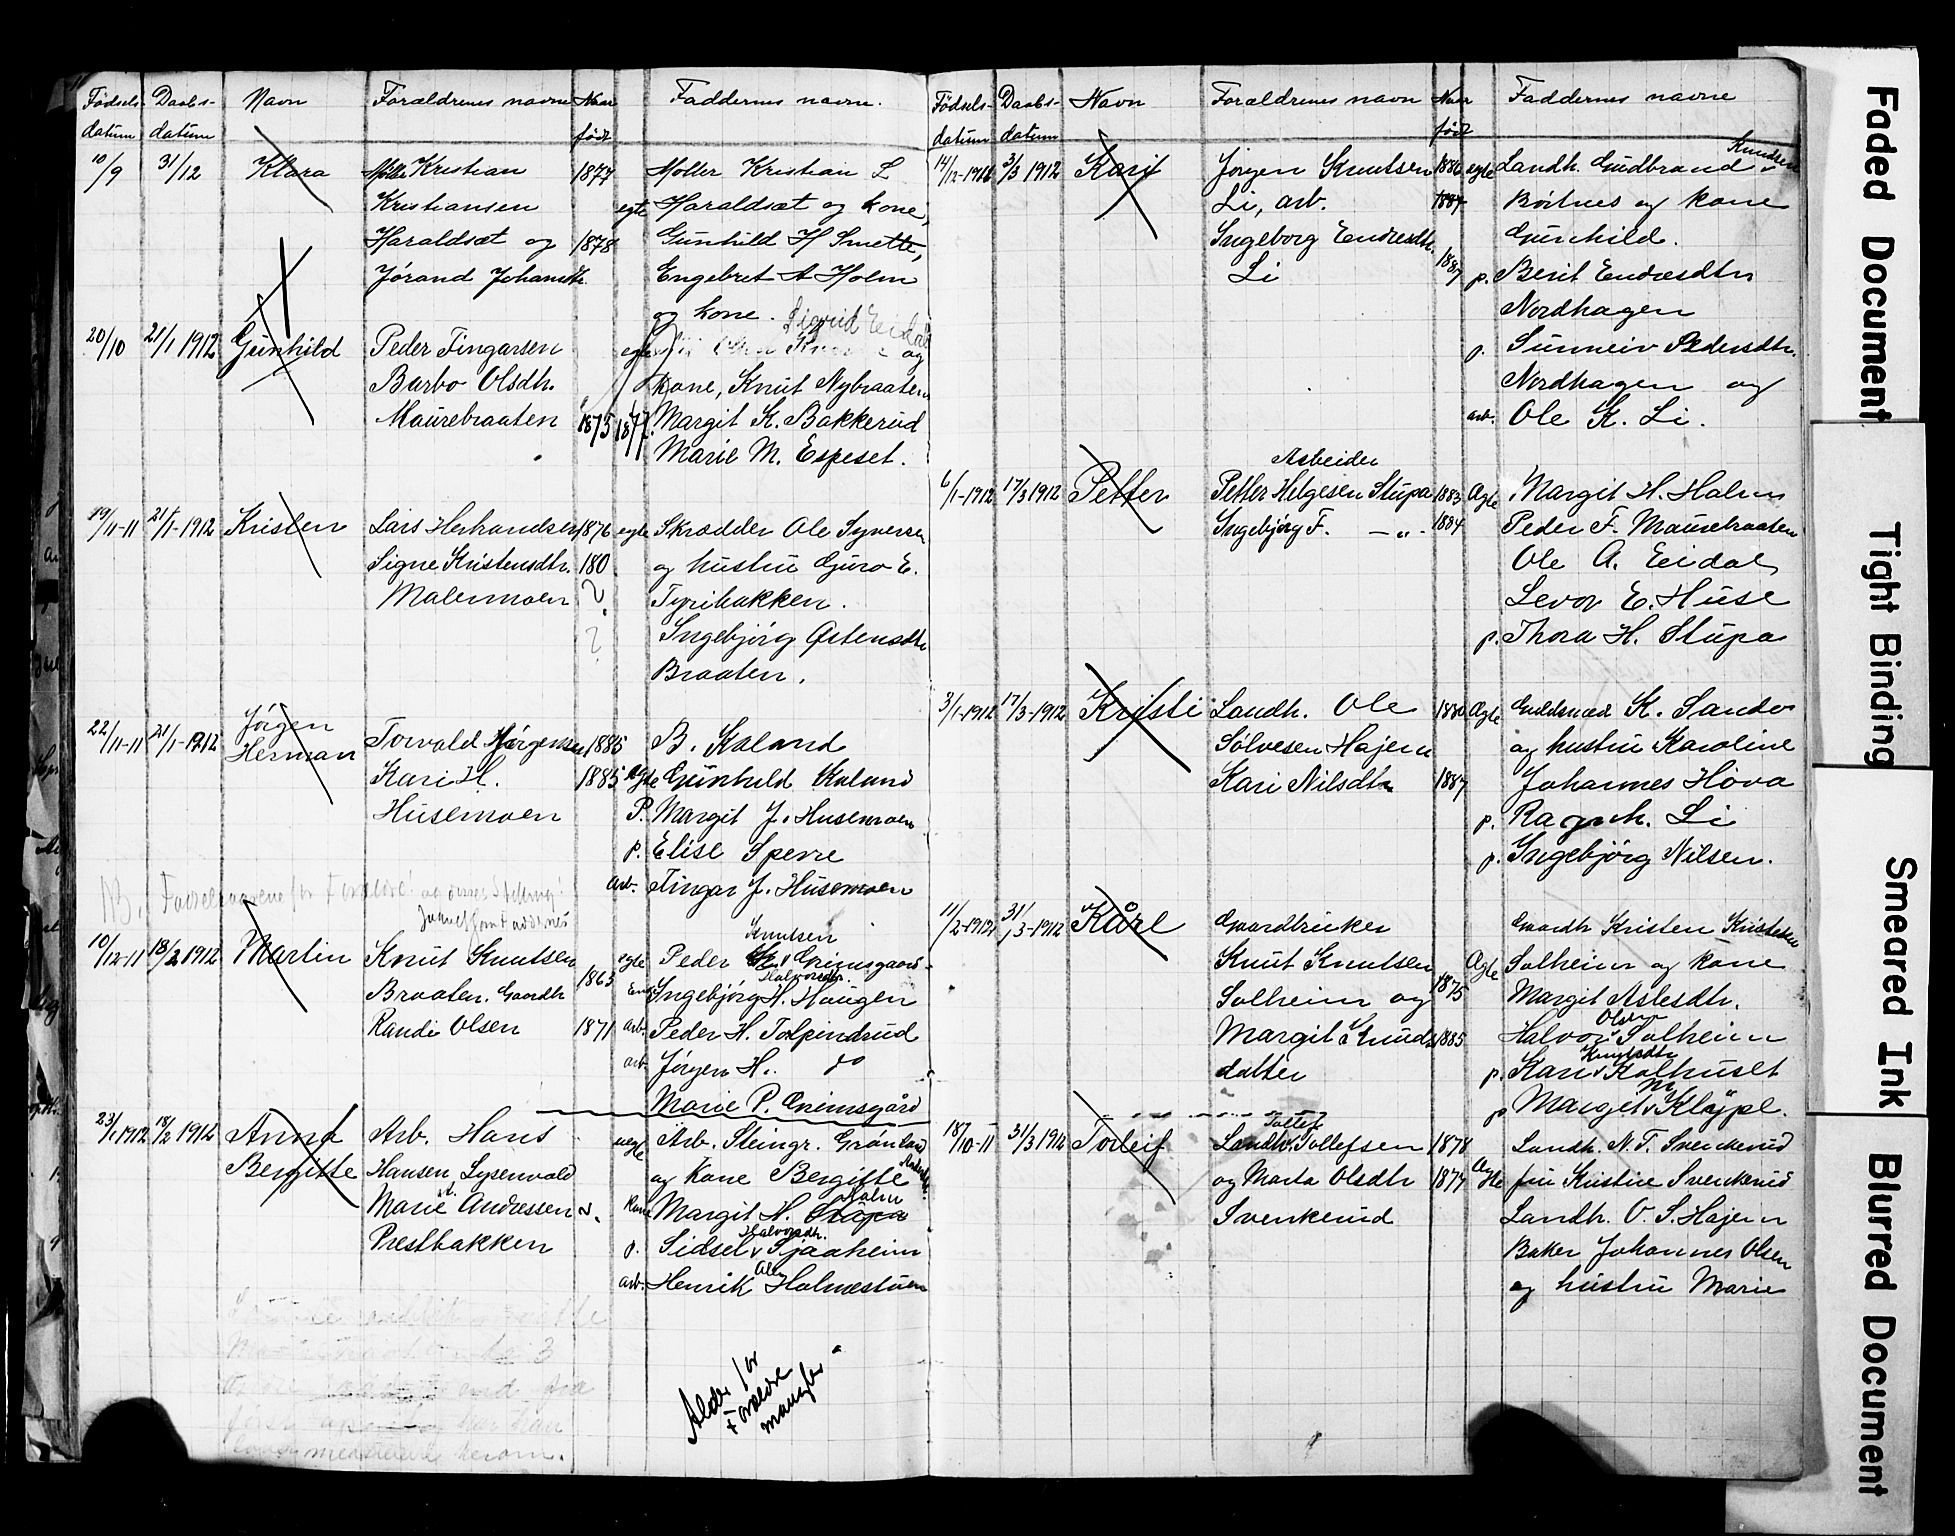 Fødsels- datum Daabs- datum Navn Forældrenes navne Naar født Faddernes navne.
10/9 31/12 Klara Møller Kristian 1877 Møller Kristian L
Kristiansen egte Haraldset og kone,
Haraldset og 1878 Gunhild H Smette,
Jørand Johansdtr. Engebret A Holm
og kone. Sigrid Eidal
20/10 21/1 1912 Gunhild Peder Fingarsen egte og
Barbo Olsdtr. kone, Knut Nybraaten
Maurebraaten 1875 1877. Margit K. Bakkerud
Marie M. Espeset.
19/11-11 21/1-1912 Kristen Lars Herbrandsen 1876 egte Skrædder Ole Syversen
Signe Kristensdtr. 180 og hustru Guro E.
Malermoen ? Tyribakken.
? Ingebjørg Østensdtr
Braaten.
22/11-11 21/1-1912 Jørgen
Herman Torvald Jørgensen 1885 B. Kaland
Kari H. 1885 Ægte Gunhild Kaland
Husemoen P. Margit J. Husemoen
p. Elise Sperre
arb. Fingar J. Husemoen
NB. Fødselsaarene for Forældre! og deres Stilling!
Jamvel for Faddernes
10/12-11 18/2 1912 Martin Knut Knutsen egte Peder Knutsen Grimsgaard
Braaten. Gaardb 1865 Enke Ingebjørg H. Halvorsdtr. Haugen
Randi Olsen 1871 arb. Peder H. Tolpindrud
arb. Jørgen H. do
Marie P. Grimsgård
23/1 1912 18/2 1912 Anna Arb. Hans uegte Arb. Steingr. Grønland
Bergitte Hansen Lysenvold og Kone Bergitte
Marie A. Andressen Kone Margit H. Holm
Prestbakken p. Sidsel Halvorsdtr. Sjaaheim
arb. Henrik Olsen Holmestuen
Alder for
Forældre
mangler
Fødsels- datum Daabs- datum Navn Forældrenes navn Naar født Faddernes navne
14/12-1911 3/3 1912 Kari Jørgen Knutsen 1886 egte Landh. Gudbrand Knudsen
Li, arb. 1887 Børtnes og kone
Ingeborg Endresdtr. Gunhild.
Li 1887 p. Berit Endresdtr
Nordhagen
p. Sunneiv Pedersdtr.
Nordhagen og
arb. Ole K. Li.
Arbeider
6/1-1912 17/3 1912 Petter Petter Helgesen Stupa 1883 Ægte Margit H. Halm
Ingebjørg F. —"— 1884 Peder F. Maurebraaten
Ole A. Eidal
Levor E. Huse
p. Thora H. Stupa
3/1-1912 17/3-1912 Kristi Landh. Ole 1880 Ægte Guldsmed K. Sando
Sølvesen Hajem og hustru Karoline
Kari Nilsdtr 1887 Johannes Hova
p. Ragnh. Li
p. Ingebjørg Nilsen.
11/2-1912 31/3-1912 Kåre Gaardbruker Gaardb Kristen Kristensen
Knut Knutsen Ægte Solheim og kone
Solheim og 1875 Margit Aslesdtr.
Margit Knuds 1885 Halvor Olsen Solheim
datter p. Kari Knutsdtr Kolhuset
p Margit M Kløpe.
18/10-11 31/3 1912 Torleif Landh. Tollef Tollefsen 1878 Landh. N. T. Svenkerud
og Marta Olsdtr 1877 Ægte fru Kristine Svenkerud
Svenkerud Landh. O. S. Hajem
Baker Johannes Olsen
og hustru Marie
Faded Document
Tight Binding
Smeared Ink
Blurred Document